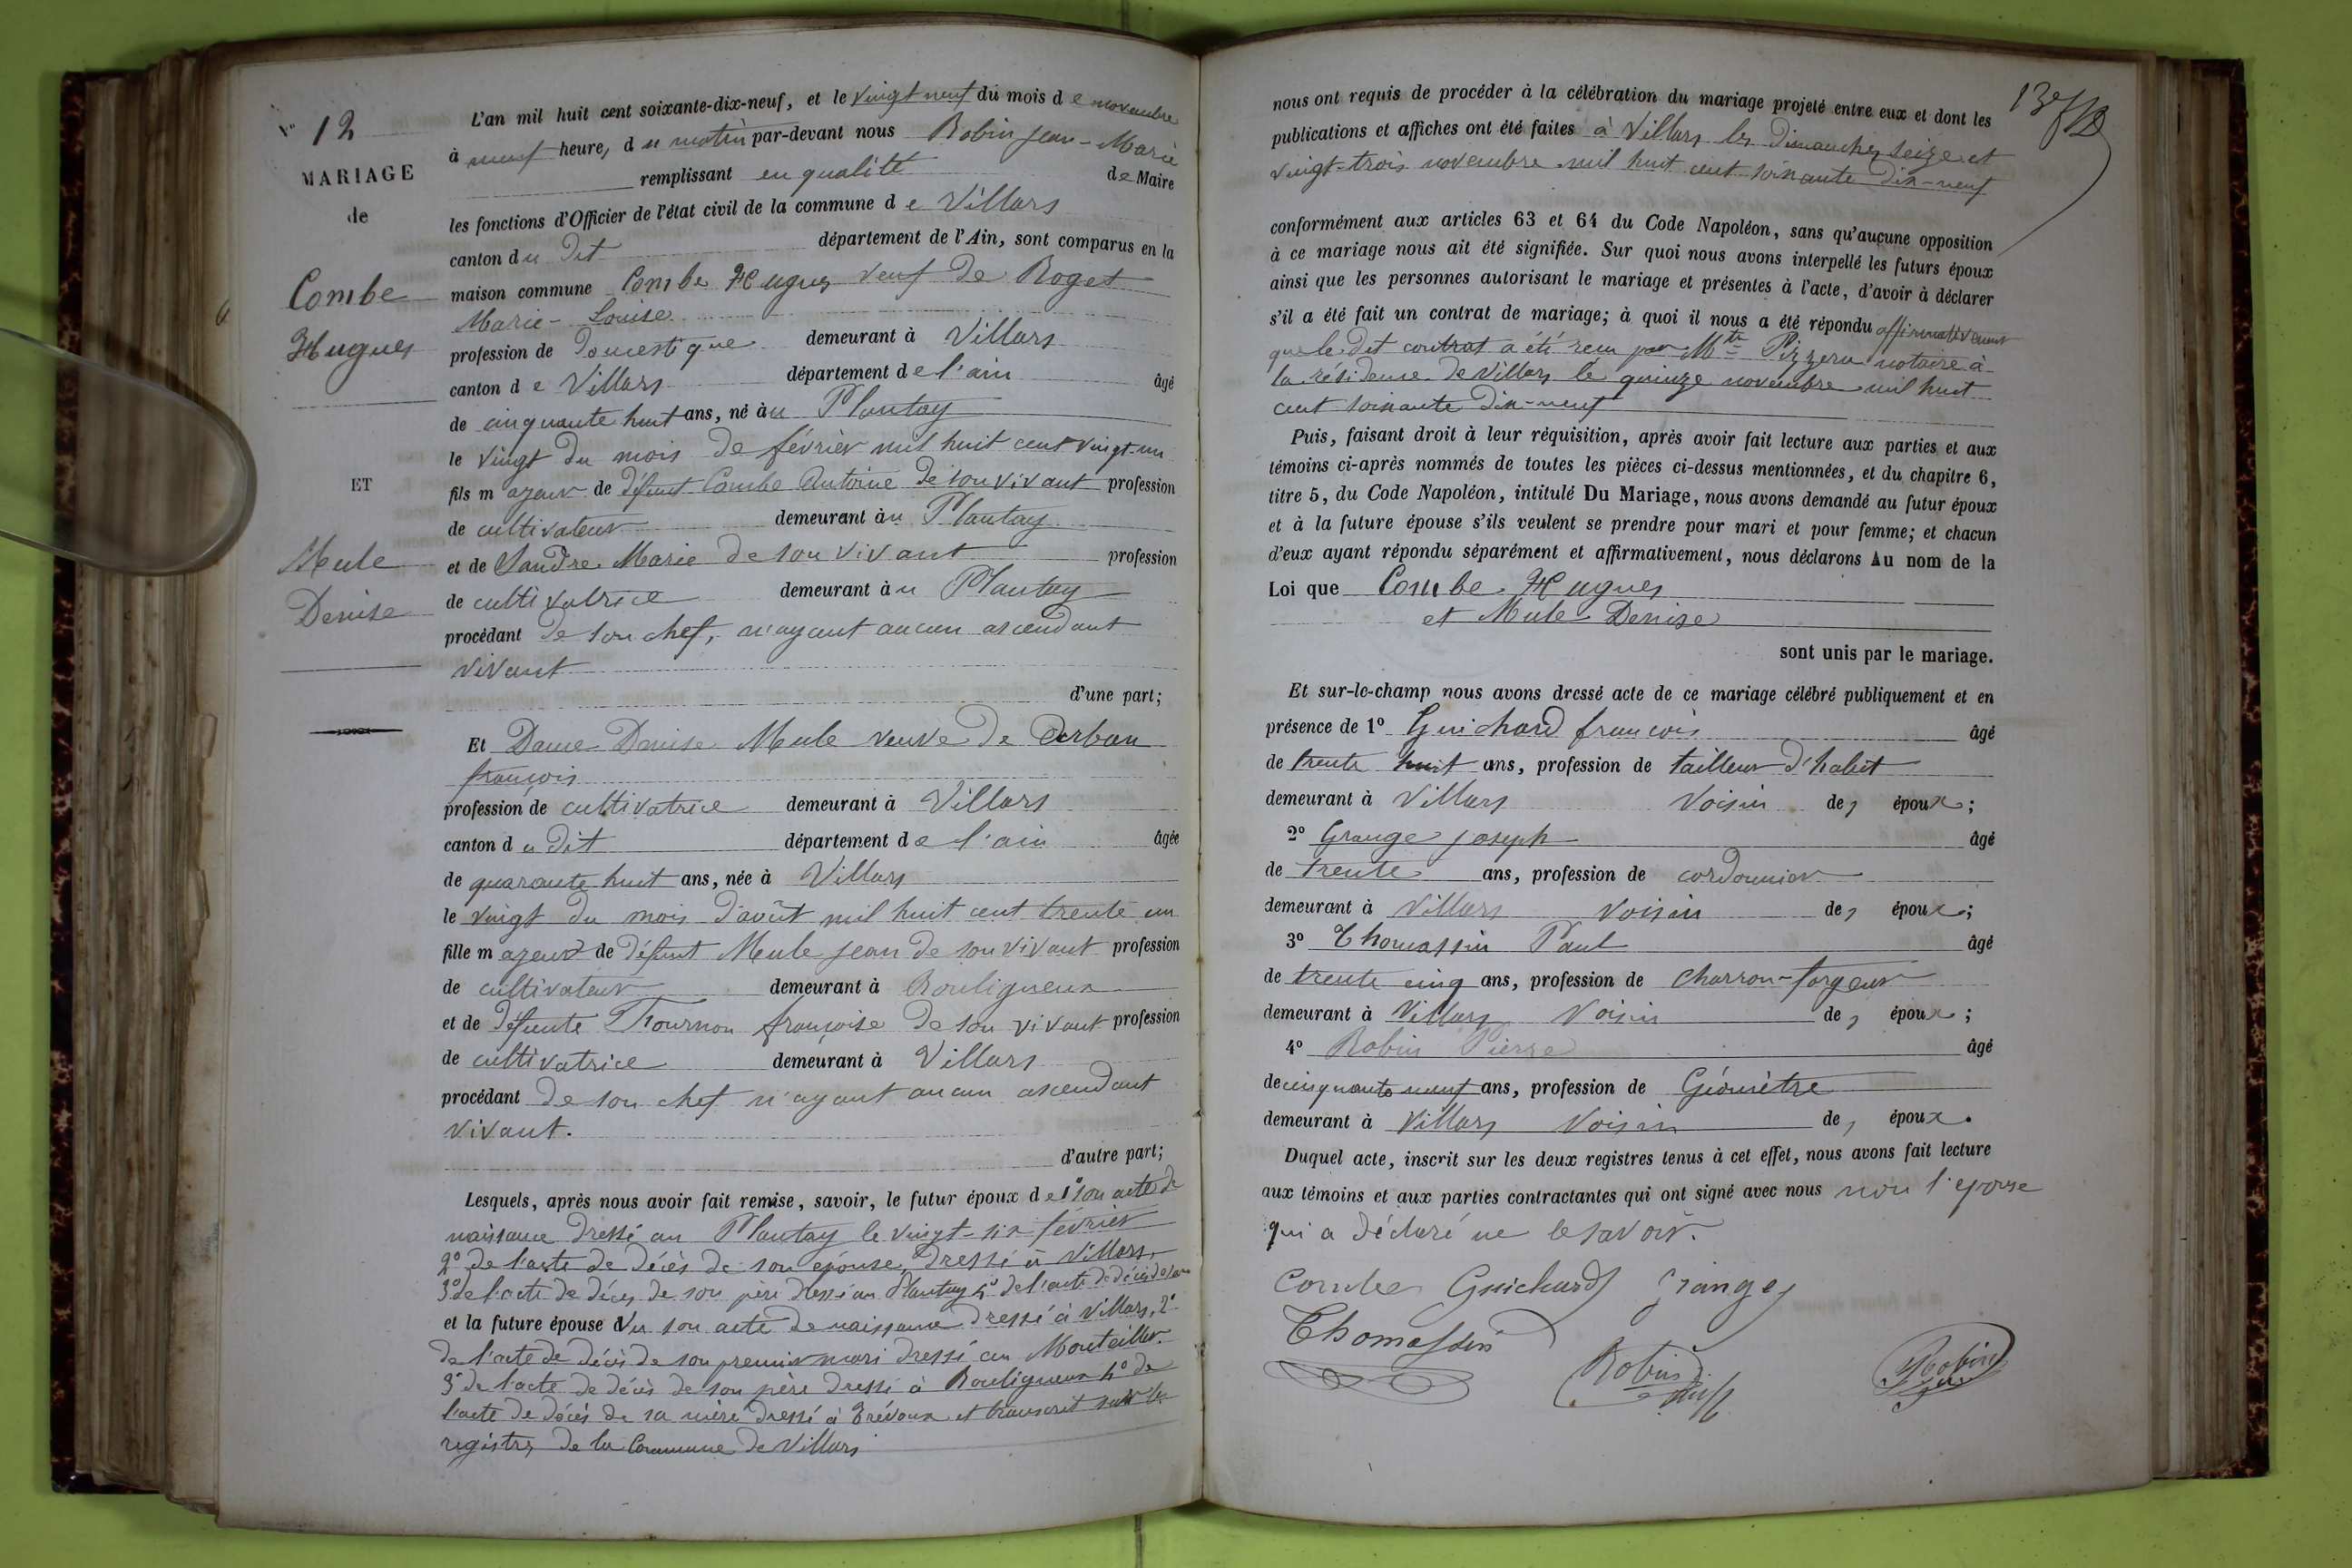 N° 12
MARIAGE
de
Combe
Hugues
ET
Mule
Denise
L'an mil huit cent soixante-dix-neuf, et le vingt neuf du mois de novembre
à neuf heure, du matin par-devant nous Robin Jean-Marie
remplissant en qualité de Maire
les fonctions d'Officier de l'état civil de la commune de Villars
canton du dit département de l'Ain, sont comparus en la
maison commune Combe Hugues veuf de Roget
Marie-Louise
profession de Domestique demeurant à Villars
canton de Villars département de l'ain âgé
de cinquante huit ans, né au Plantay
le vingt du mois de février mil huit cent vingt-un
fils majeur de défunt Combe Antoine de son vivant profession
de cultivateur demeurant au Plantay
et de Sandre Marie de son vivant profession
de cultivatrice demeurant au Plantay
procédant de son chef, n'ayant aucun ascendant
vivant
d'une part;
Et Dame Denise Mule veuve de Derban
françois
profession de cultivatrice demeurant à Villars
canton du dit département de l'ain âgée
de quarante huit ans, née à Villars
le vingt du mois d'août mil huit cent trente un
fille majeure de défunt Mule Jean de son vivant profession
de cultivateur demeurant à Bouligneux
et de défunte Tournon françoise de son vivant profession
de cultivatrice demeurant à Villars
procédant de son chef n'ayant aucun ascendant
vivant.
d'autre part;
Lesquels, après nous avoir fait remise, savoir, le futur époux de 1° son acte de
naissance dressé au Plantay le vingt-six février
2° de l'acte de décès de son épouse, dressé à Villars,
3° de l'acte de décès de son père dressé au Plantay 4° de l'acte de décès de sa
et la future épouse d'u son acte de naissance dressé à Villars, 2°
de l'acte de décès de son premier mari dressé au Montellier.
3° de l'acte de décès de son père dressé à Bouligneux 4° de
l'acte de décès de sa mère dressé à Trévoux et transcrit sur les
registres de la Commune de Villars
13e
nous ont requis de procéder à la célébration du mariage projeté entre eux et dont les
publications et affiches ont été faites à Villars les Dimanches seize et
vingt-trois novembre mil huit cent soixante dix-neuf
conformément aux articles 63 et 64 du Code Napoléon, sans qu'aucune opposition
à ce mariage nous ait été signifiée. Sur quoi nous avons interpellé les futurs époux
ainsi que les personnes autorisant le mariage et présentes à l'acte, d'avoir à déclarer
s'il a été fait un contrat de mariage; à quoi il nous a été répondu affirmativement
que le dit contrat a été reçu par Mtre Pizzera notaire à
la résidence de Villars le quinze novembre mil huit
cent soixante dix-neuf
Puis, faisant droit à leur réquisition, après avoir fait lecture aux parties et aux
témoins ci-après nommés de toutes les pièces ci-dessus mentionnées, et du chapitre 6,
titre 5, du Code Napoléon, intitulé Du Mariage, nous avons demandé au futur époux
et à la future épouse s'ils veulent se prendre pour mari et pour femme; et chacun
d'eux ayant répondu séparément et affirmativement, nous déclarons Au nom de la
Loi que Combe Hugues
et Mule Denise
sont unis par le mariage.
Et sur-le-champ nous avons dressé acte de ce mariage célébré publiquement et en
présence de 1° Guichard françois âgé
de trente huit ans, profession de tailleur d'habit
demeurant à Villars Voisin des époux;
2° Grange Joseph âgé
de trente ans, profession de cordonnier
demeurant à Villars Voisin des époux;
3° Thomassin Paul âgé
de trente cinq ans, profession de charron-forgeur
demeurant à Villars Voisin des époux;
4° Robin Pierre âgé
de cinquante neuf ans, profession de Géomètre
demeurant à Villars Voisin des époux.
Duquel acte, inscrit sur les deux registres tenus à cet effet, nous avons fait lecture
aux témoins et aux parties contractantes qui ont signé avec nous non l'épouse
qui a déclaré ne le savoir.
Combe Guichard Grange
Thomassin
Robin
Robin